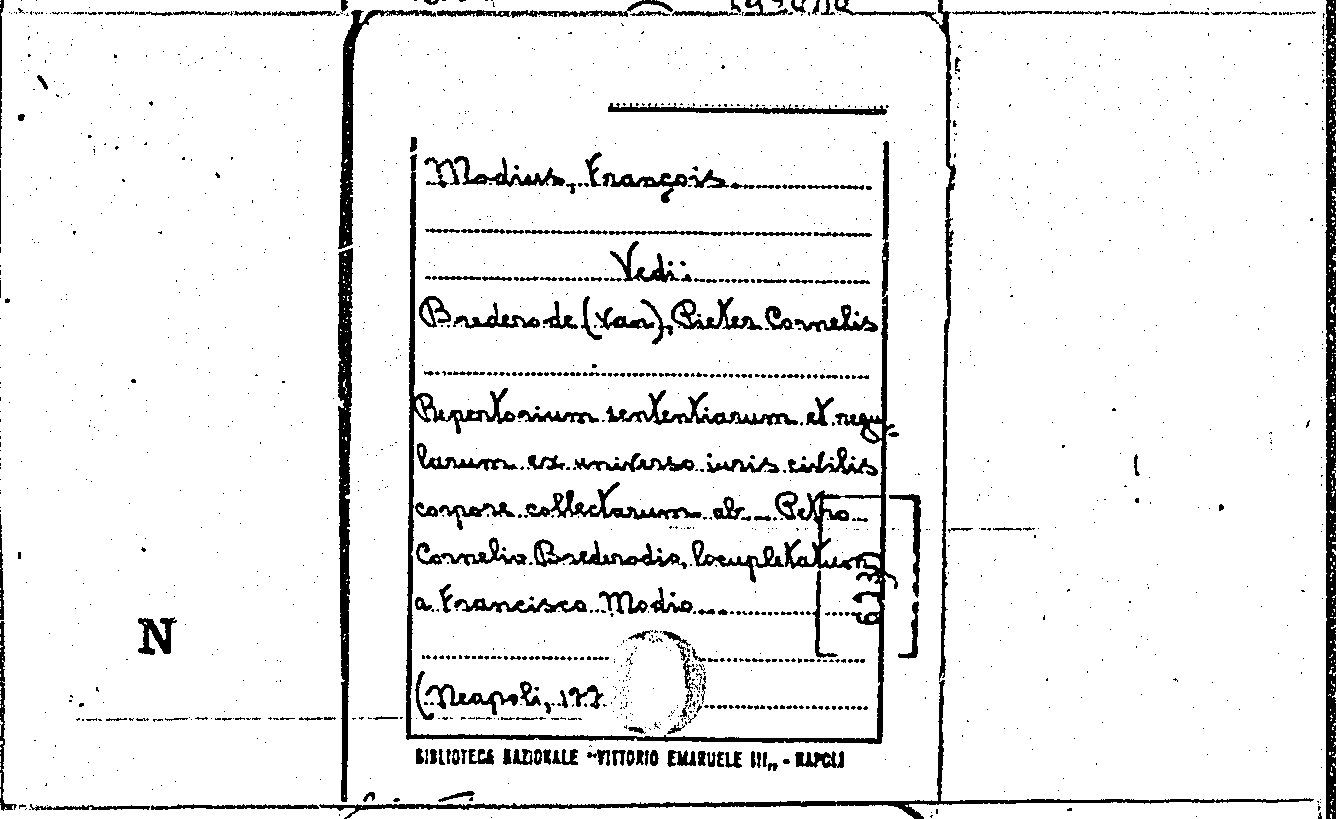 Modius, François.
Vedi:
Brederode (van), Pieter Cornelis
Repertorium sententiarum et regu-
larum ex universo iuris civilis
corpore collectarum ab Petro
Cornelio Brederodio, locupletatum
a Francisco Modio...
(Neapoli, 177
N
BIBLIOTECA NAZIONALE "VITTORIO EMANUELE III„ - NAPOLI